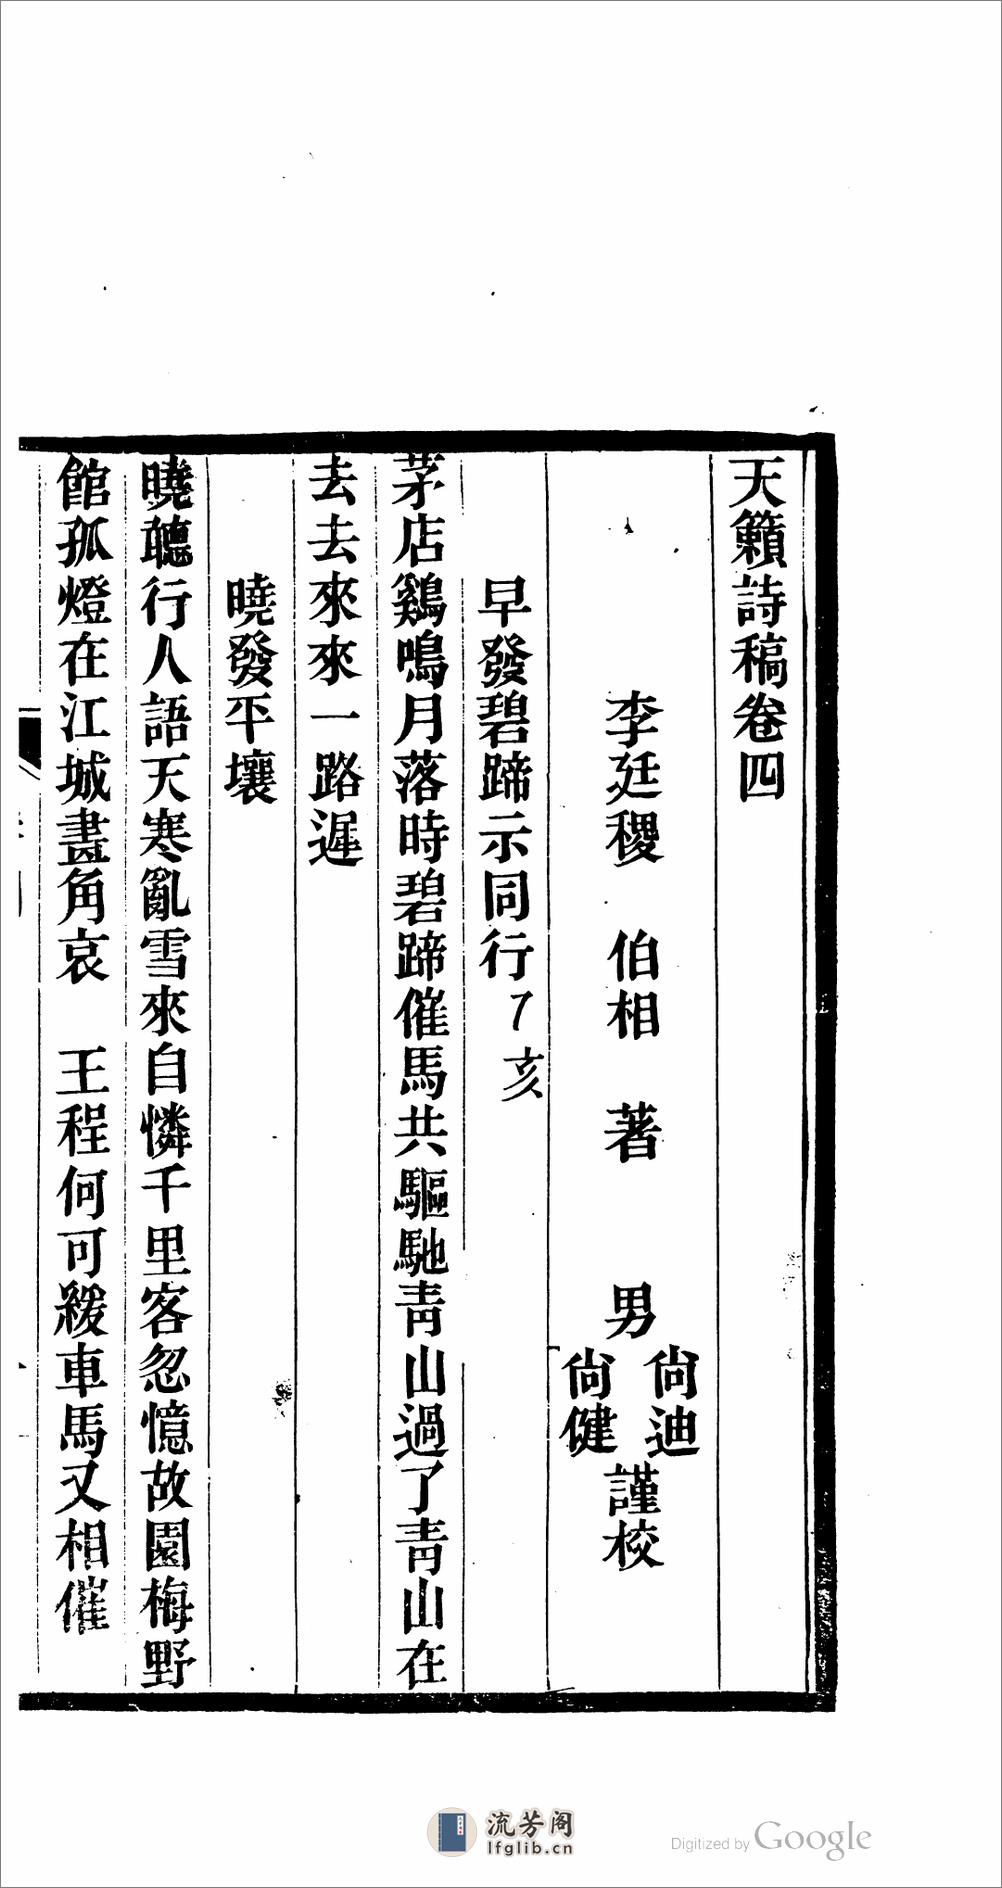 天籟詩稿卷四
李廷稷 伯相 著 男 尙迪 尙健 謹校
早發碧蹄示同行 丁亥
茅店鷄鳴月落時碧蹄催馬共驅馳靑山過了靑山在
去去來來一路遲
曉發平壤
曉聽行人語天寒亂雪來自憐千里客忽憶故園梅野
館孤燈在江城畫角哀 王程何可緩車馬又相催
流芳阁
lfglib.cn
Digitized by Google